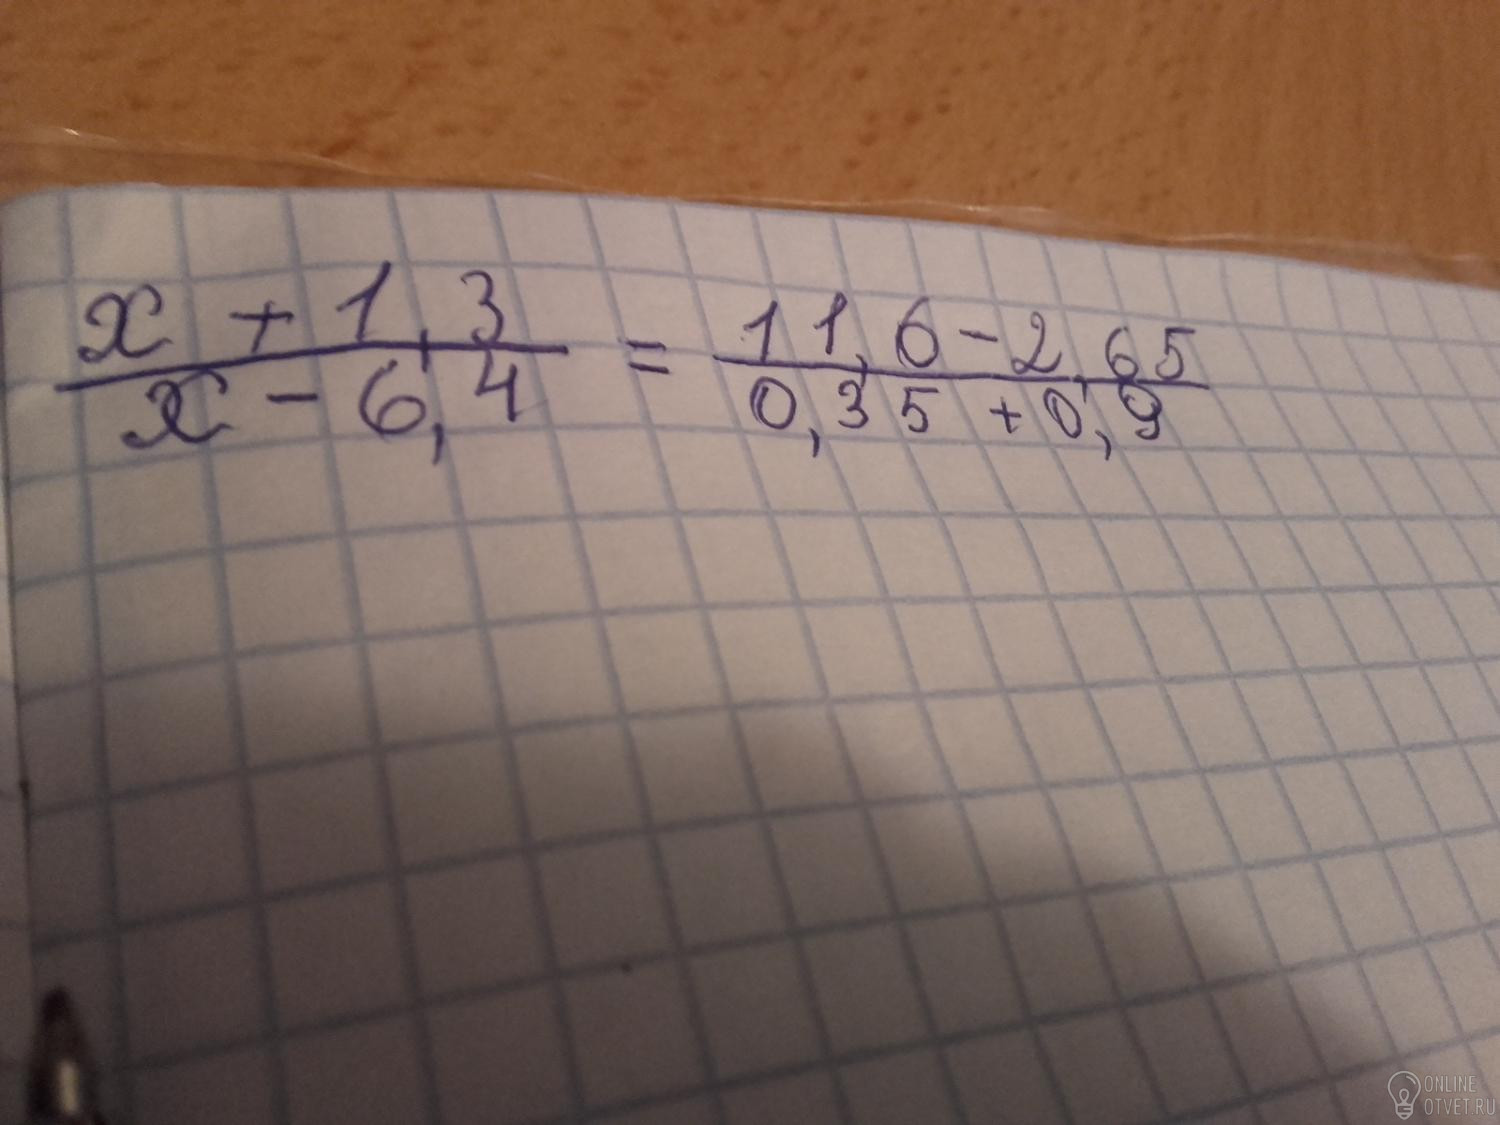 x + 1,3 = 11,6 - 2,65
x - 6,4 0,35 + 0,9
ONLINE
OTVET.RU